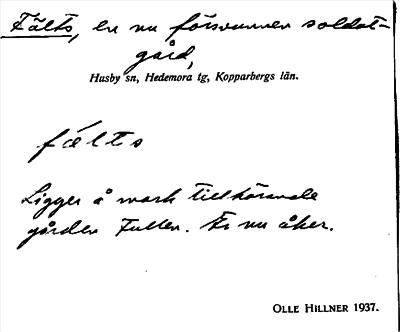 Fälts, en nu försvunnen soldat-
gård,
Husby sn, Hedemora tg, Kopparbergs län.
fælts
Ligger å mark tillhörande
gården Fullen. Är nu åker.
OLLE HILLNER 1937.